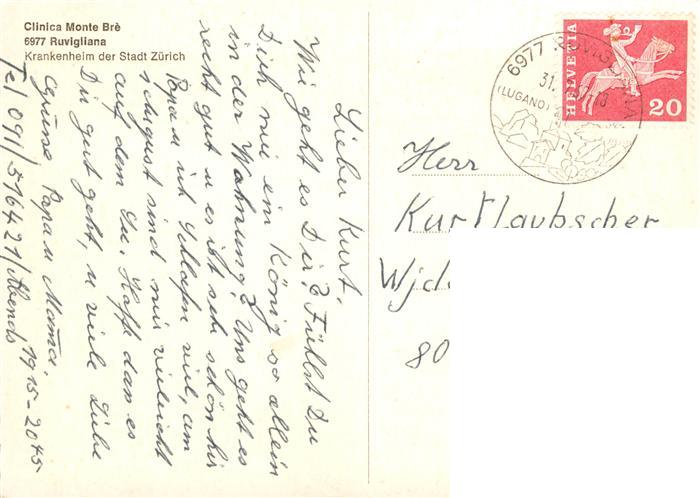 Clinica Monte Brè
6977 Ruvigliana
Krankenheim der Stadt Zürich
Lieber Kurt.
Wie geht es Dir? Fühlst Du
Dich wie ein König so allein
in der Wohnung? Uns geht es
recht gut u es ist sehr schön hir
Papa u ich schlafen viel, am
1 August sind wir vieleicht
auf dem See. Hoffe dan es
Dir gut geht, u viele Liebe
Grüsse Papa u Mama.
Tel 091/516421/Abends 1915-2045
6977 RUVIGLIANA
31.
(LUGANO)
HELVETIA
20
Herr
Kurt Laubscher
80